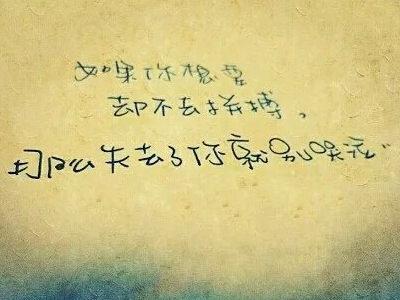 如果你想要
却不去拼搏,
那么失去了你就别哭泣